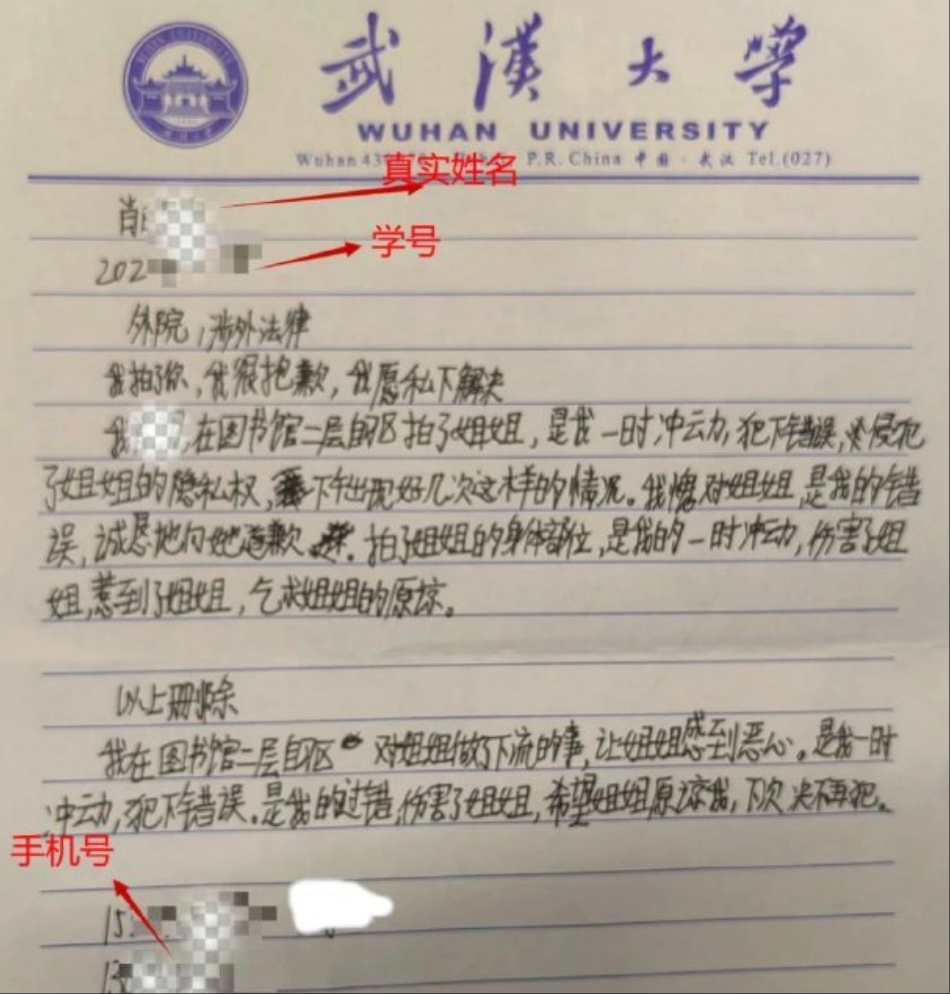 武漢大学
WUHAN UNIVERSITY
Wuhan P.R. China 中国·武汉 Tel.(027)
真实姓名
肖
学号
202
外院,涉外法律
我拍了你,我很抱歉,我愿私下解决
我 ,在图书馆二层自区拍了姐姐,是我一时冲动,犯下错误,侵犯
了姐姐的隐私权,下午出现好几次这样的情况。我愧对姐姐,是我的错
误,诚恳地向她道歉。拍了姐姐的身体部位,是我的一时冲动,伤害了姐
姐,惹到了姐姐,乞求姐姐的原谅。
以上删除
我在图书馆二层自区 对姐姐做了下流的事,让姐姐感到恶心。是我一时
冲动,犯下错误。是我的过错,伤害了姐姐,希望姐姐原谅我,下次决不再犯。
手机号
15
13